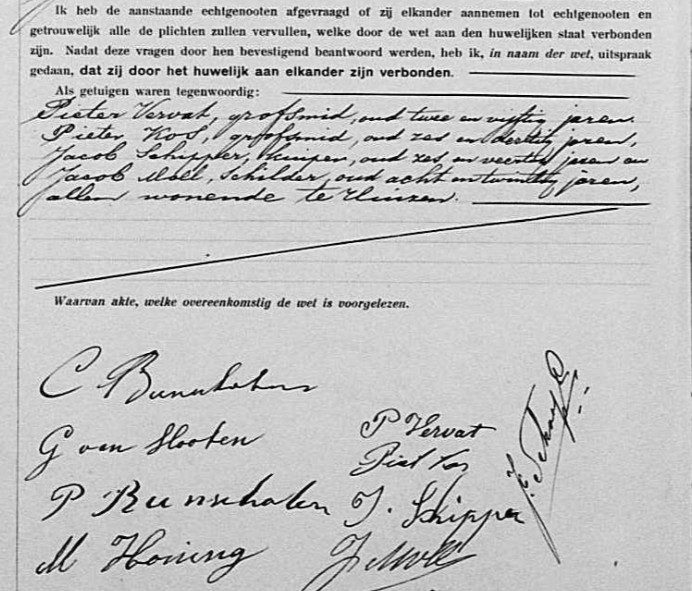 Ik heb de aanstaande echtgenooten afgevraagd of zij elkander aannemen tot echtgenooten en
getrouwelijk alle de plichten zullen vervullen, welke door de wet aan den huwelijken staat verbonden
zijn. Nadat deze vragen door hen bevestigend beantwoord werden, heb ik, in naam der wet, uitspraak
gedaan, dat zij door het huwelijk aan elkander zijn verbonden.
Als getuigen waren tegenwoordig:
Pieter Vervat, grofsmid, oud twee en vijftig jaren.
Pieter Kos, grofsmid, oud zes en dertig jaren,
Jacob Schipper, kuiper, oud zes en veertig jaren en
Jacob Moll, Schilder, oud acht en twintig jaren,
allen wonende te Huizen.
Waarvan akte, welke overeenkomstig de wet is voorgelezen.
C Bunschoten
G van Slooten
P Vervat
Piet Kos
P Bunschoten
J. Schipper
M Honing
J Moll